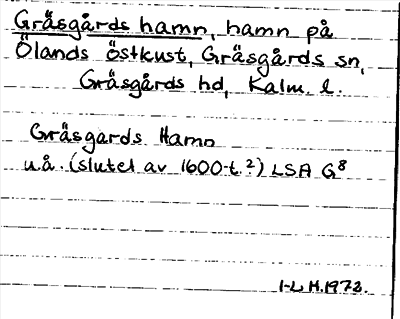 Gräsgårds hamn, hamn på
Ölands östkust, Gräsgårds sn,
Gräsgårds hd, Kalm. l.
Gräsgards Hamn
u.å. (slutet av 1600-t.?) LSA G8
I-L H. 1973.